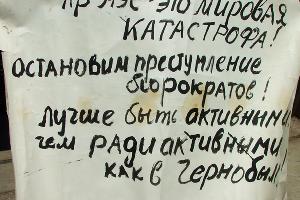 АЭС - ЭТО МИРОВАЯ
КАТАСТРОФА!
ОСТАНОВИМ ПРЕСТУПЛЕНИЕ
БЮРОКРАТОВ!
ЛУЧШЕ БЫТЬ АКТИВНЫМИ,
ЧЕМ РАДИАКТИВНЫМИ
КАК В ЧЕРНОБЫЛ!